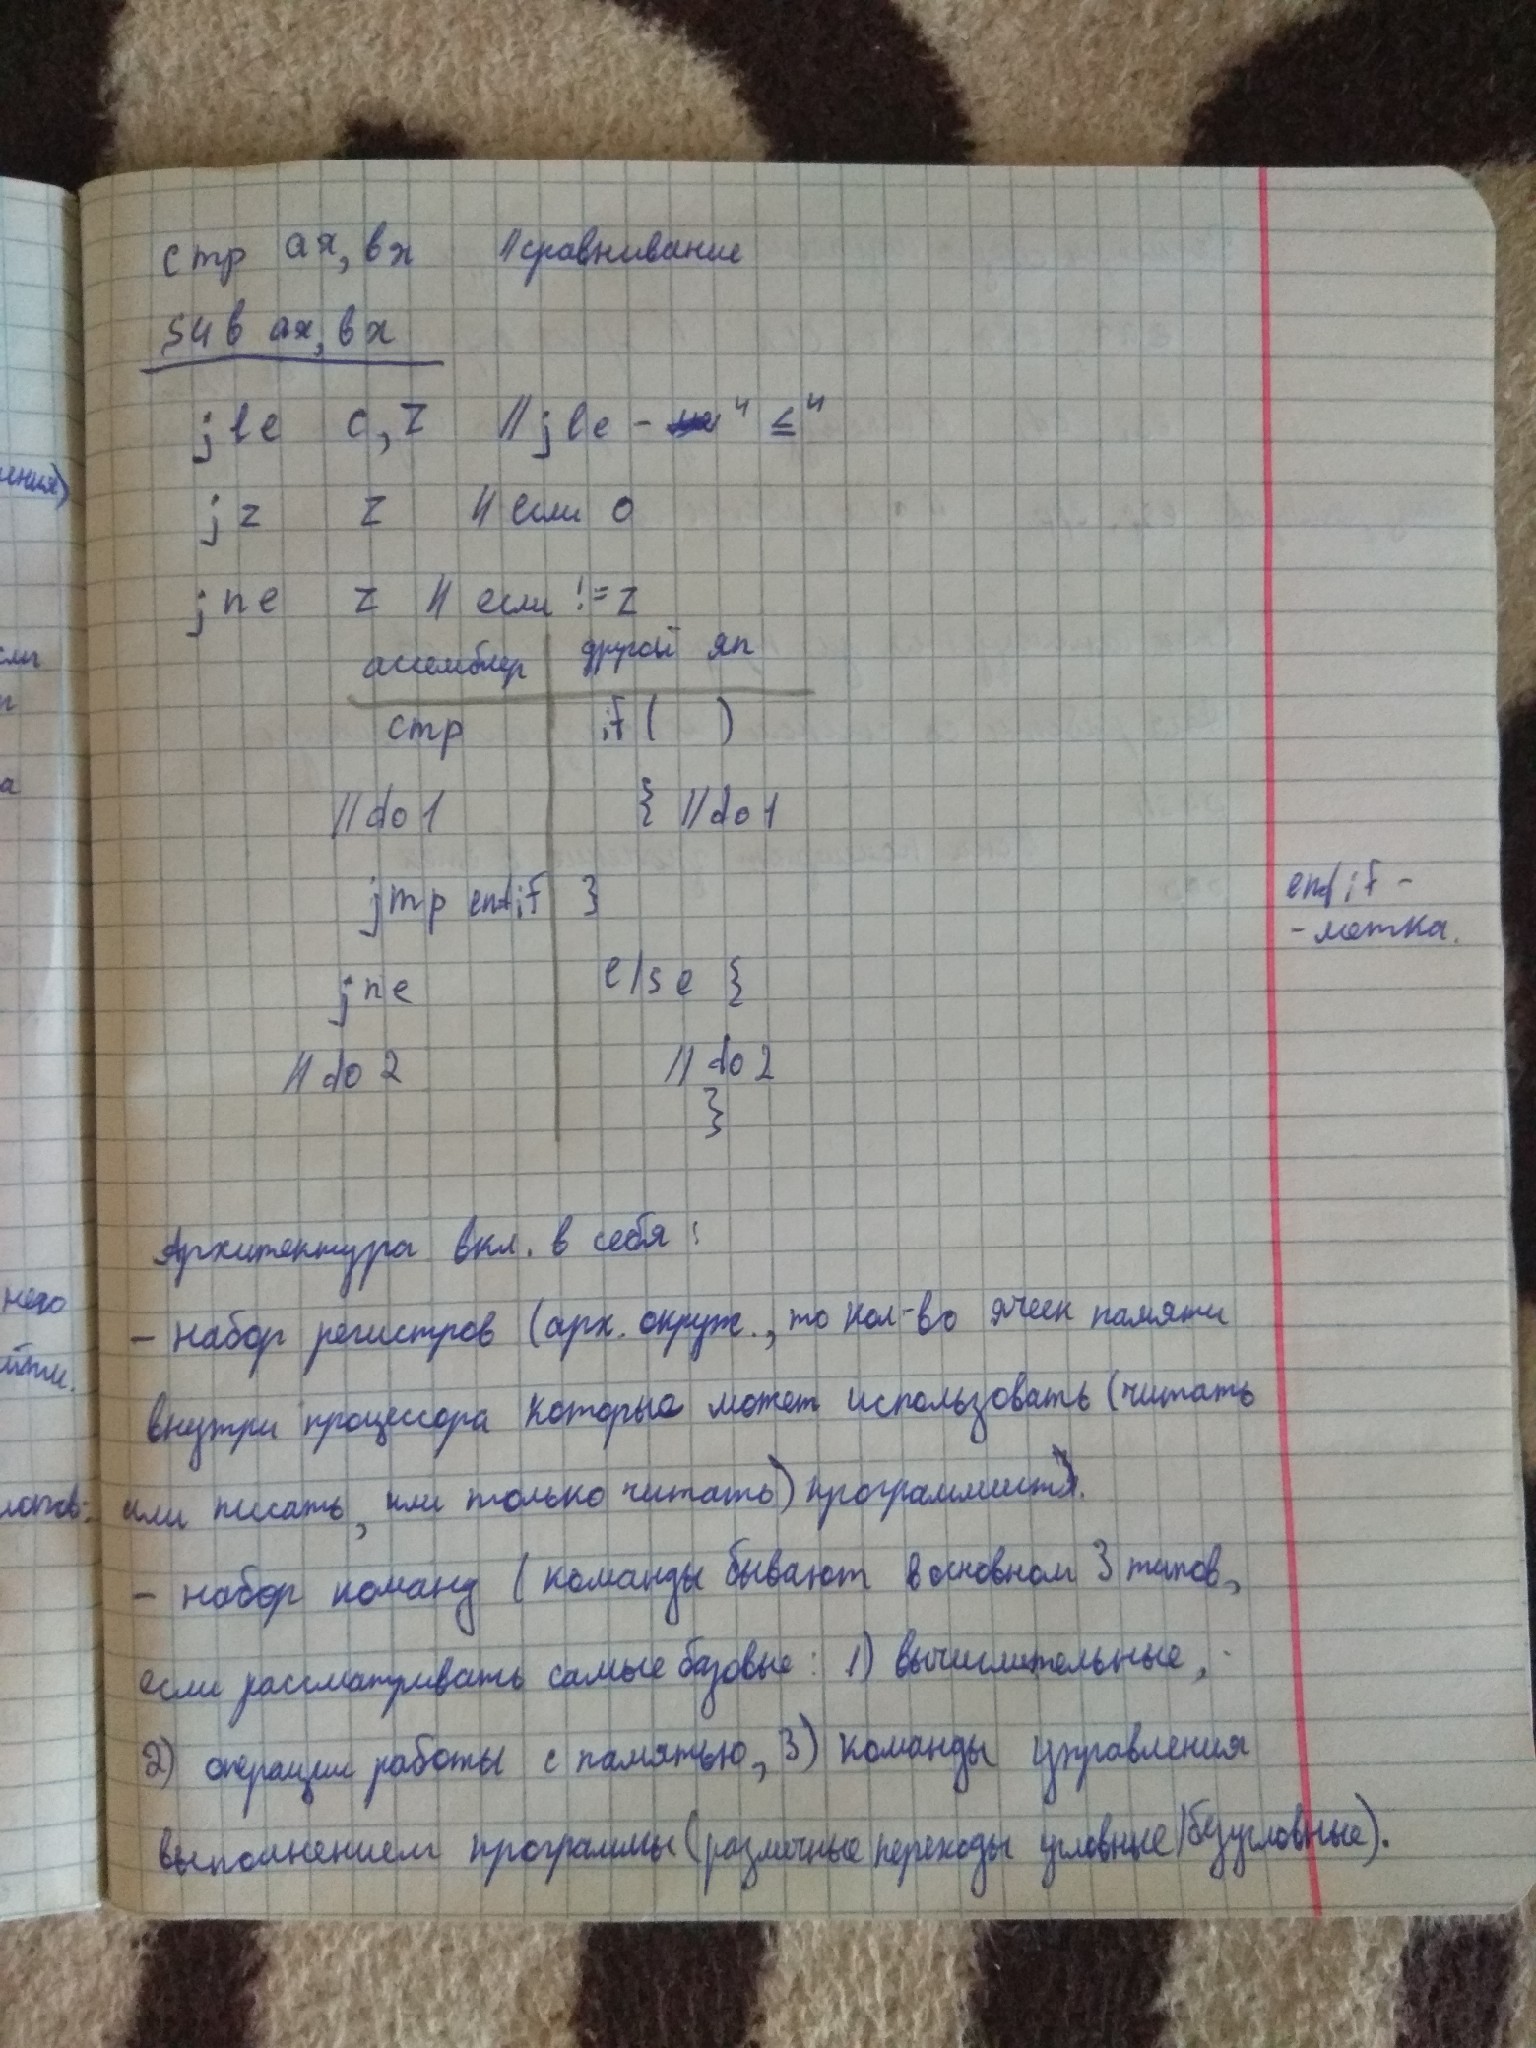 cmp ax, bx //сравнивание
sub ax, bx
jle c, z //jle - "≤"
jz z // если 0
jne z // если != z
ассемблер другой яп
cmp if ( )
//do 1 { //do 1
jmp endif }
endif -
- метка.
jne else {
//do 2 //do 2
}
Архитектура вкл. в себя:
- набор регистров (арх. окруж., то кол-во ячеек памяти
внутри процессора которые может использовать (читать
или писать, или только читать) программист).
- набор команд (команды бывают в основном 3 типов,
если рассматривать самые базовые: 1) вычислительные,
2) операции работы с памятью, 3) команды управления
выполнением программы (различные переходы условные/безусловные).
ения)
сли
п
а
него
йти.